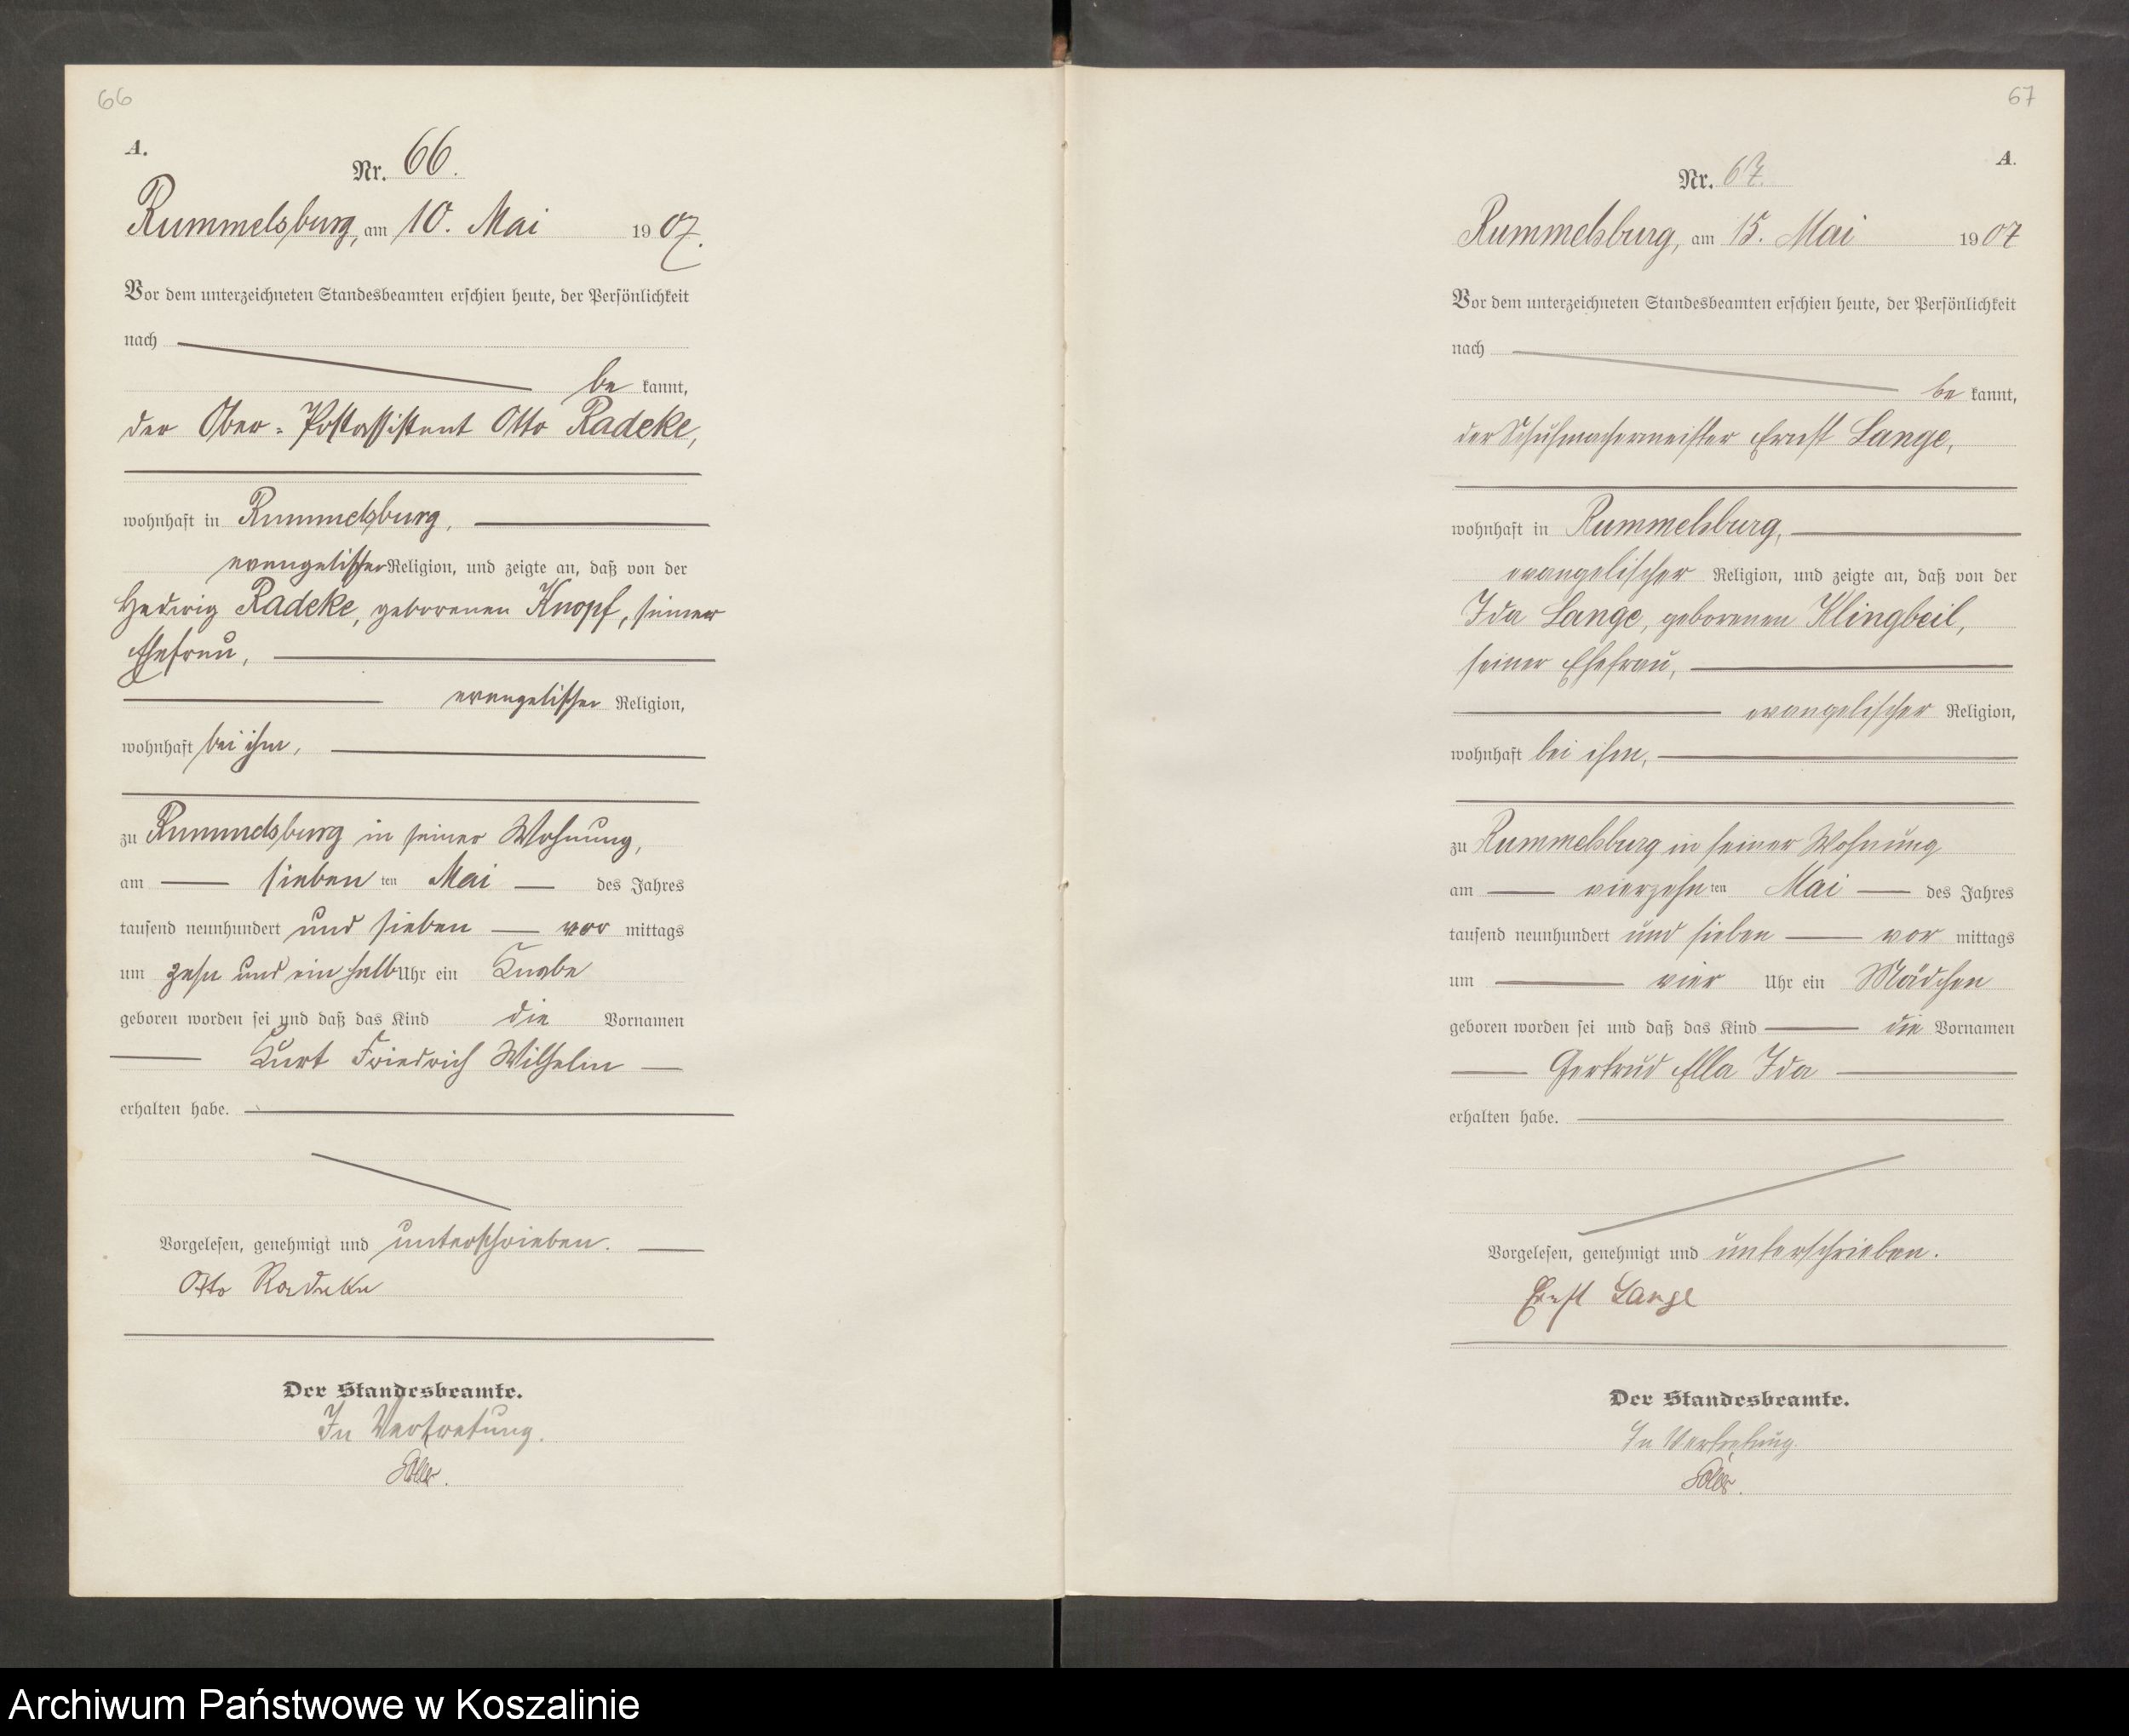 66
A.
Nr. 66.
Rummelsburg, am 10. Mai 1907.
Vor dem unterzeichneten Standesbeamten erschien heute, der Persönlichkeit
nach
be kannt,
der Ober-Postassistent Otto Radeke,
wohnhaft in Rummelsburg,
evangelischer Religion, und zeigte an, daß von der
Hedwig Radeke, geborenen Knopf, seiner
Ehefrau,
evangelischer Religion,
wohnhaft bei ihm,
zu Rummelsburg in seiner Wohnung,
am sieben ten Mai des Jahres
tausend neunhundert und sieben vor mittags
um zehn und ein halb Uhr ein Knabe
geboren worden sei und daß das Kind die Vornamen
Kurt Friedrich Wilhelm
erhalten habe.
Vorgelesen, genehmigt und unterschrieben.
Otto Radeke
Der Standesbeamte.
In Vertretung.
67
A.
Nr. 67.
Rummelsburg, am 15. Mai 1907
Vor dem unterzeichneten Standesbeamten erschien heute, der Persönlichkeit
nach
be kannt,
der Schuhmachermeister Ernst Lange,
wohnhaft in Rummelsburg,
evangelischer Religion, und zeigte an, daß von der
Ida Lange, geborenen Klingbeil,
seiner Ehefrau,
evangelischer Religion,
wohnhaft bei ihm,
zu Rummelsburg in seiner Wohnung
am vierzehn ten Mai des Jahres
tausend neunhundert und sieben vor mittags
um vier Uhr ein Mädchen
geboren worden sei und daß das Kind die Vornamen
Gertrud Ella Ida
erhalten habe.
Vorgelesen, genehmigt und unterschrieben.
Ernst Lange
Der Standesbeamte.
In Vertretung.
Archiwum Państwowe w Koszalinie